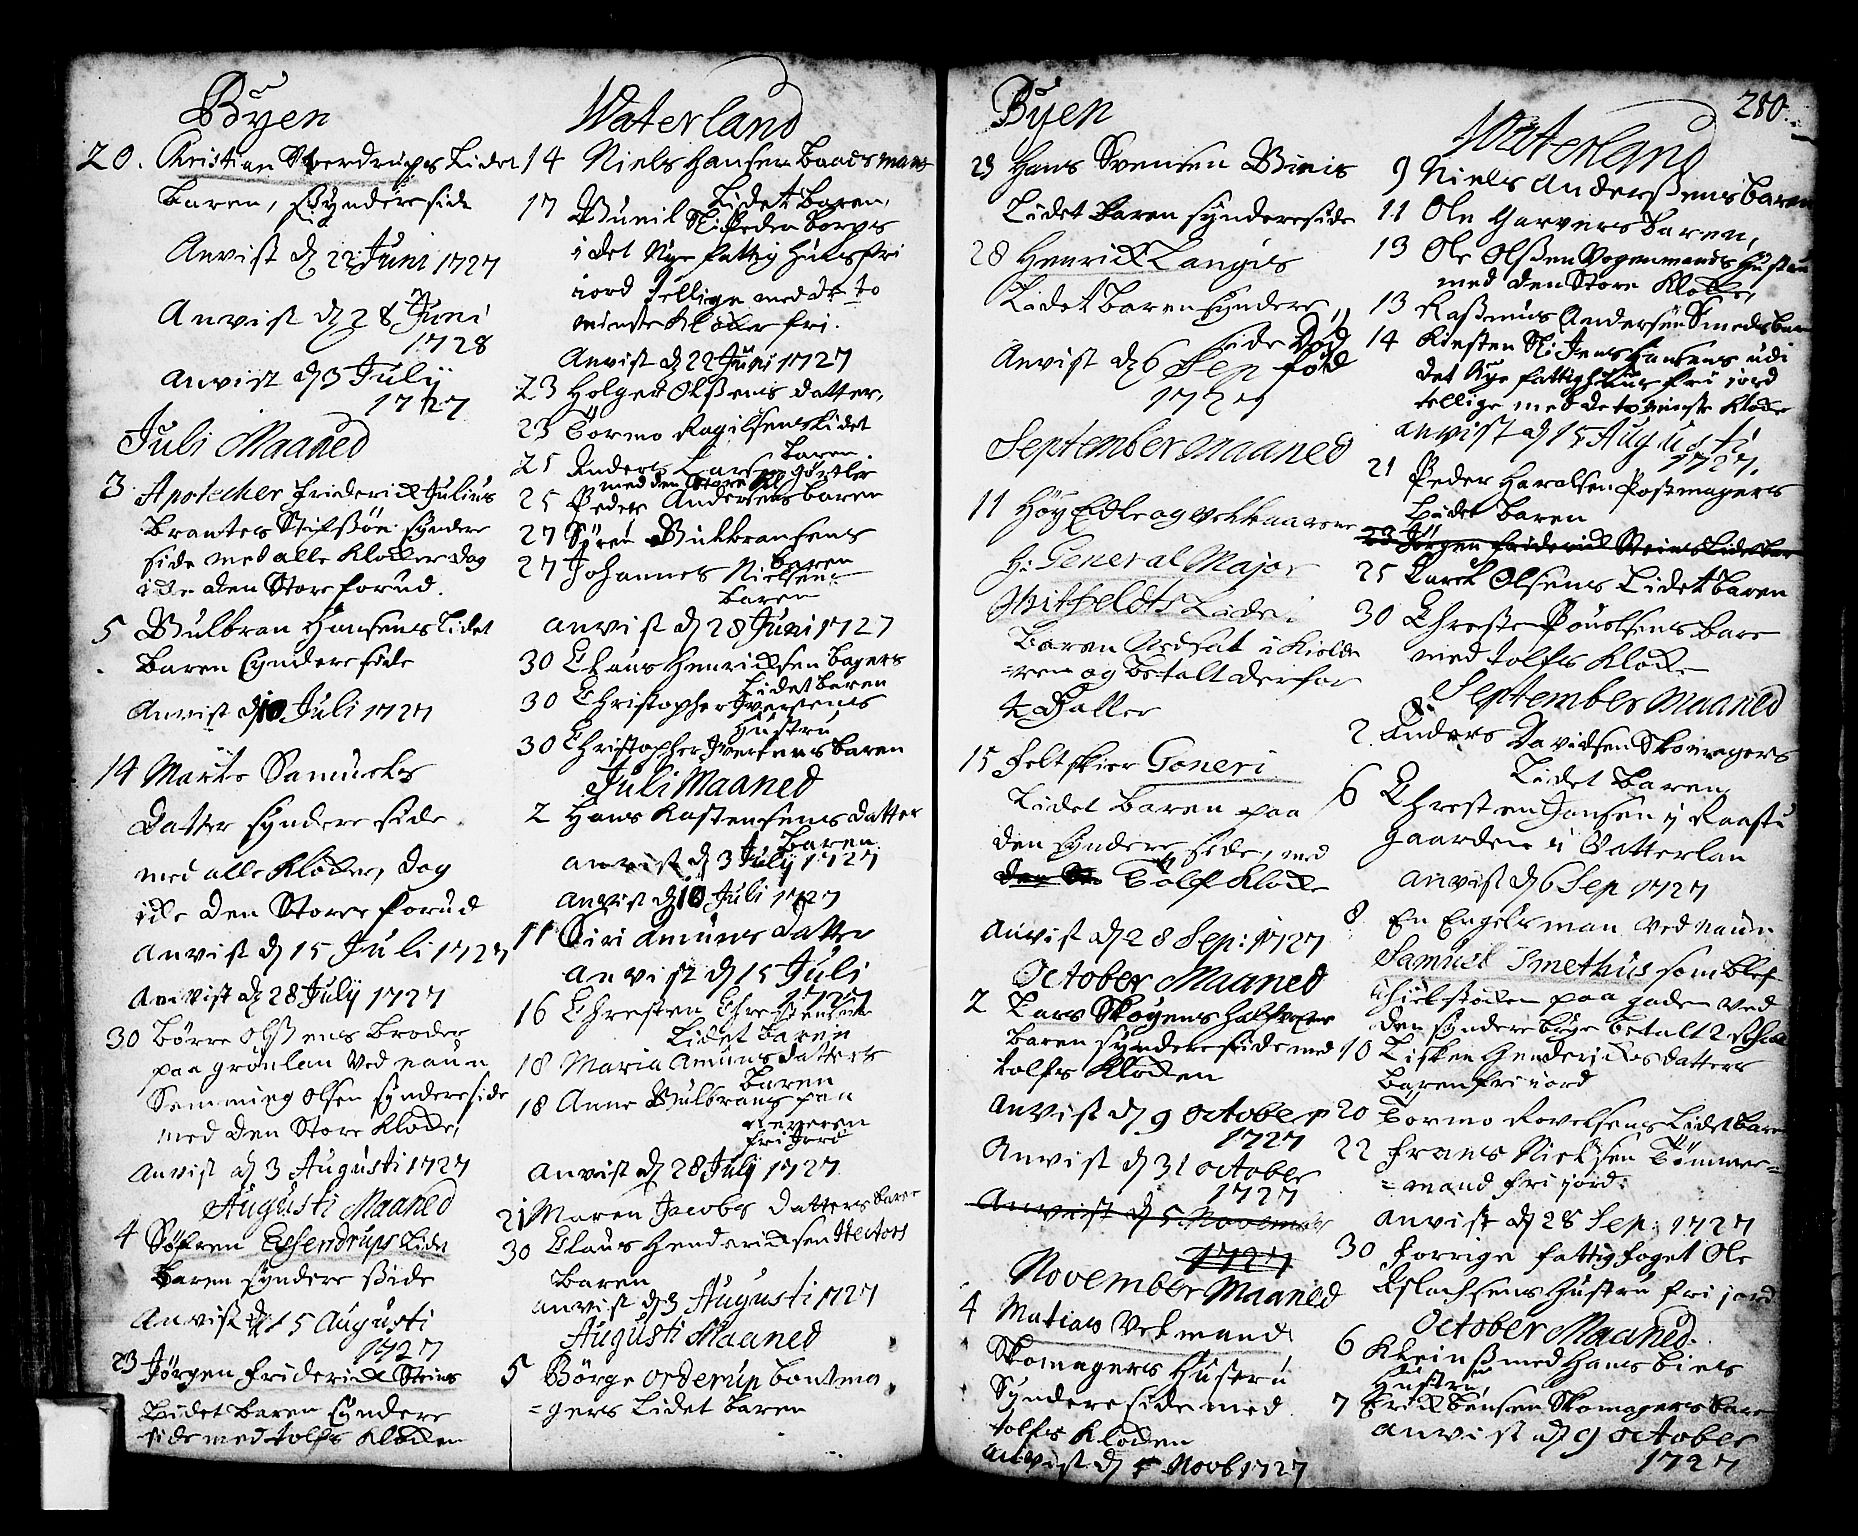 Byen
20. Kristian Stoerdrups Lidet
baren, Syndereside
Anvist d 22 Juni 1727
Anvist d 28 Juni
1728
Anvist d 3 Julij
1727
Juli Maaned
3. Apotecher Friderick Julius
Brantes Stifsøn Syndere
side med alle Klocker Dog
icke den Store forud.
5 Wulbran Hansens Lidet
baren Syndereside
Anvist d 10 Juli 1727
14 Marte Samuels
Datter Syndere side
med alle Klocker, Dog
icke den Store forud
Anvist d 15 Juli 1727
Anvist d 28 Julij 1727
30 Børre Olsens broder
paa grønlan Ved naun
Semming Olsen Syndereside
med den Store Klocke,
Anvist d 3 Augusti 1727
Augusti Maaned
4 Søfren Essendrups Lidet
baren Syndere side
Anvist d 15 Augusti
1727
23 Jørgen Friderick Steins
Lidet baren Syndere
side med tolfs Klocken
Waterland
14 Niels Hansen Baadsmans
Lidet baren,
17 Bunil
i det Nye fattig Huus fri
iord tillige med de to
minste Klocker fri.
Anvist d 22 Juni 1727
23 Holger Olsens datter,
23 Tormo Ragilsens Lidet
baren.
25 Anders Larsen Gørtler
med den Store Kl
25 Peder Andersens baren
27 Søren Wulbransens
baren
27 Johannes Nielsens
baren
Anvist d 28 Juni 1727
30 Claus Henricksen bagers
Lidet baren
30 Christopher Iversens
Hustru
30 Christopher Iversens baren
Juli Maaned
2 Hans Kastensens datter
baren.
Anvist d 3 Julij 1727
Anvist d 10 Juli 1727
11 Siri Amuns datter
Anvist d 15 Juli
1727
16 Christen Christensens
Lidet baren
18 Maria Amunsdatters
baren
18 Anne Wulbrans paa
fri Jord
Anvist d 28 Julij 1727
21 Maren Jacobs datters baren
30 Claus Hendericksen Hectors
baren
Anvist d 3 Augusti 1727
Augusti Maaned
5 Børge Orderup bontma
=gers Lidet baren
Byen
23 Hans Svensen
Lidet baren syndereside
28 Henrick Langis
Lidet baren Syndere
side
Anvist d 6 Sep
1727
September Maaned
11 Høy Edle og
H: General Major
Hvitfeldts Lidet
baren Nedsat i Kielde
=ren og betalt derfor
4 Daller
15 Feltskier Goneri
Lidet baren paa
den Syndere side, med
Tolf Klocke
Anvist d 28 Sep: 1727
October Maaned
2 Lars Skøyens
baren syndereside med
tolfs Klocken
Anvist d 9 October
1727
Anvist d 31 October
1727
Anvist d 5 November
1727
November Maaned
4 Matias Vekmand
Skomagers Hustru
Syndereside med
tolfs Klocken
Anvist d Novb 1727
280.
Waterland
9 Niels Andersens baren
11 Ole Garvers baren,
13 Ole Olsen Vogenmands Hustru
med den Store Klocke,
13 Rasmus Andersen Smeds baren
14 Kirsten Jens Hansens udi
det Nye fattighuus fri jord
tillige med de to minste Klocke
Anvist d 15 Augusti
1727.
21 Peder Haralsen Postmagers
Lidet baren
23 Jørgen Friderick Steins Lidet bar
25 Larck Olsens Lidet baren
30 Christen Pouelsens bare
med tolfs Klocke
September Maaned
2. Anders Davidsen Skomagers
Lidet baren
6 Christen Jansen i Raastu
gaarden i Vatterlan
Anvist d 6 Sep 1727
8. En Engelsman ved naun
Samuel Smethus som blef
paa gaden ved
den syndere
10 Lisken Hendericks datters
baren fri iord
20 Tormo Rovelsens Lidet baren
22 Frans Nielsen Tømmer=
=mand fri jord.
Anvist d 28 Sep: 1727
30 forrige fattigfoget Ole
Aslachsens Hustru fri jord
October Maaned.
6 Kleinsmed Hans biels
Hustru
7 Erick bensen Skomagers bare
Anvist d 9 October
1727